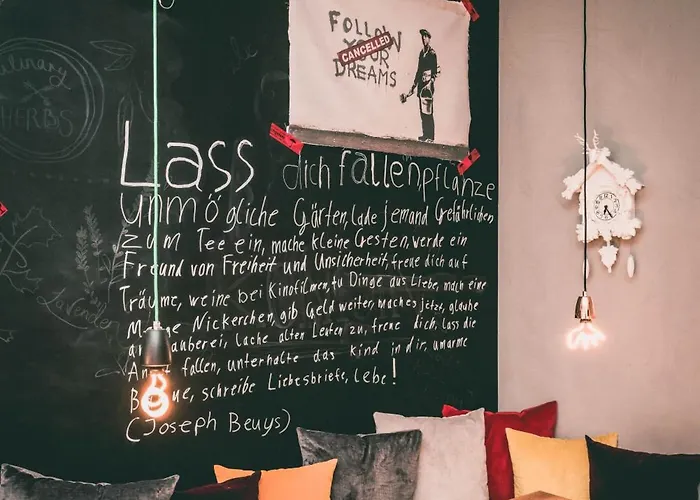 culinary
HERBS
FOLLOW
YOUR
CANCELLED
DREAMS
Lass dich fallen, pflanze
unmögliche Gärten, lade jemand Gefährlichen
zum Tee ein, mache kleine Gesten, werde ein
Freund von Freiheit und Unsicherheit, freue dich auf
Träume, weine bei Kinofilmen, tu Dinge aus Liebe, mach eine
Nickerchen, gib Geld weiter, mach es jetzt, glaube
lache alten Leuten zu, freue dich, lass die
fallen, unterhalte das Kind in dir, umarme
schreibe Liebesbriefe, lebe!
(Joseph Beuys)
Lavender